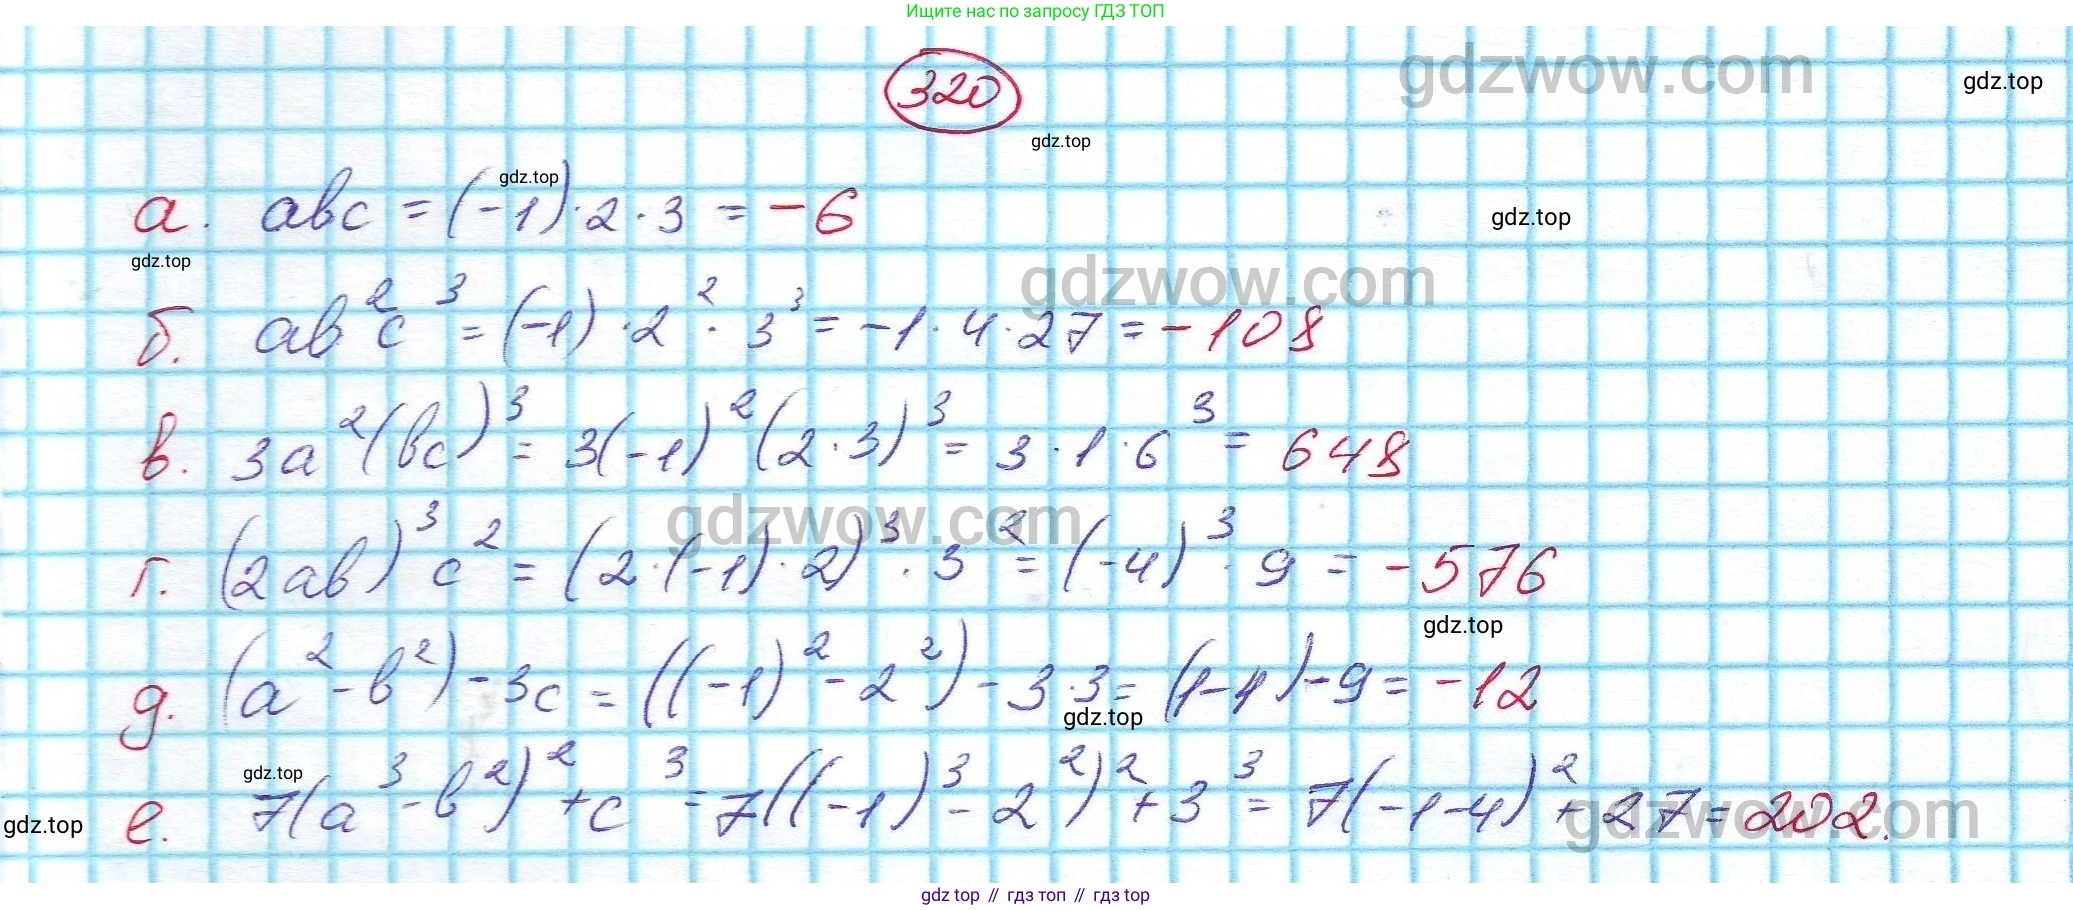 Ищите нас по запросу ГДЗ ТОП
gdzwow.com
320
gdz.top
gdz.top
gdz.top
а. abc = (-1)·2·3 = -6
gdz.top
gdz.top
gdzwow.com
б. ab²c³ = (-1)·2²·3³ = -1·4·27 = -108
в. 3a²(bc)³ = 3(-1)²(2·3)³ = 3·1·6³ = 648
gdzwow.com
г. (2ab)³c² = (2·(-1)·2)³·3² = (-4)³·9 = -576
gdz.top
д. (a²-b²)-3c = ((-1)²-2²)-3·3 = (1-4)-9 = -12
gdz.top
gdz.top
е. 7(a³-b²)²+c³ = 7((-1)³-2²)²+3³ = 7(-1-4)²+27 = 202.
gdz.top
gdzwow.com
gdz top // гдз топ // гдз top